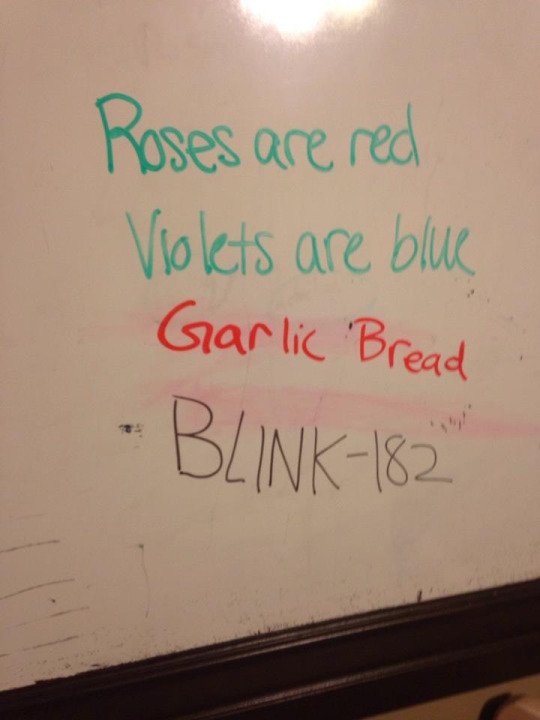 Roses are red
Violets are blue
Garlic Bread
BLINK-182